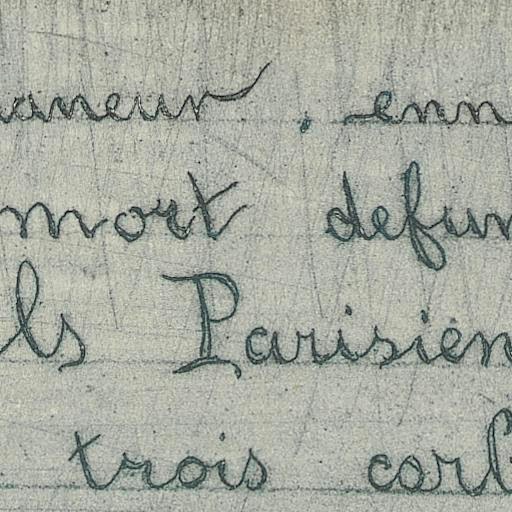 aneur . enn
mort defun
ls Parisien
trois corb